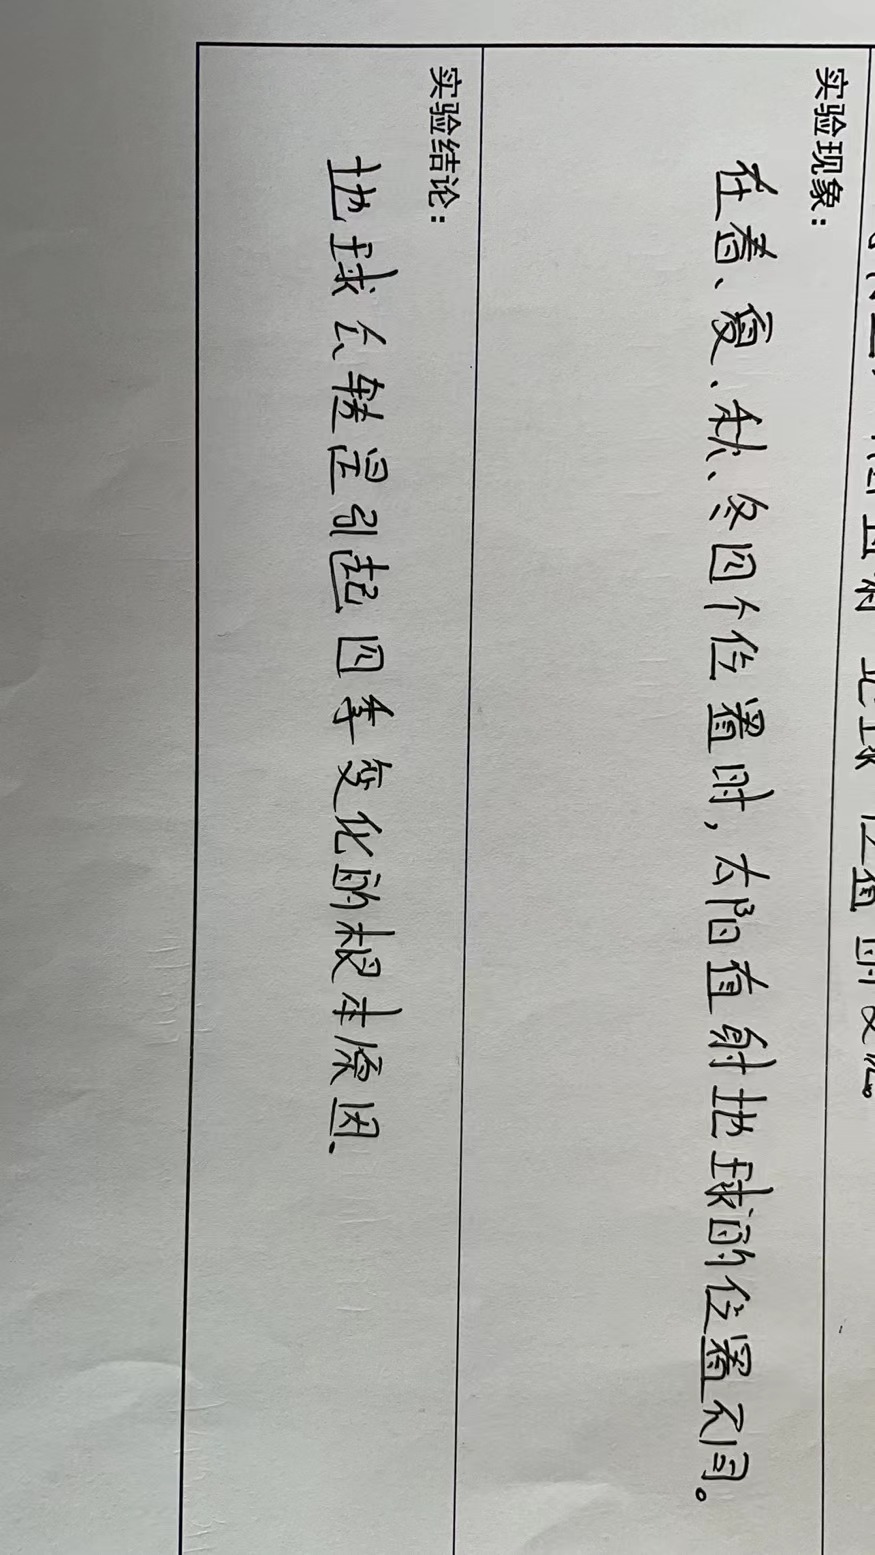 实验现象：
在春、夏、秋、冬四个位置时，太阳直射地球的位置不同。
实验结论：
地球公转是引起四季变化的根本原因.